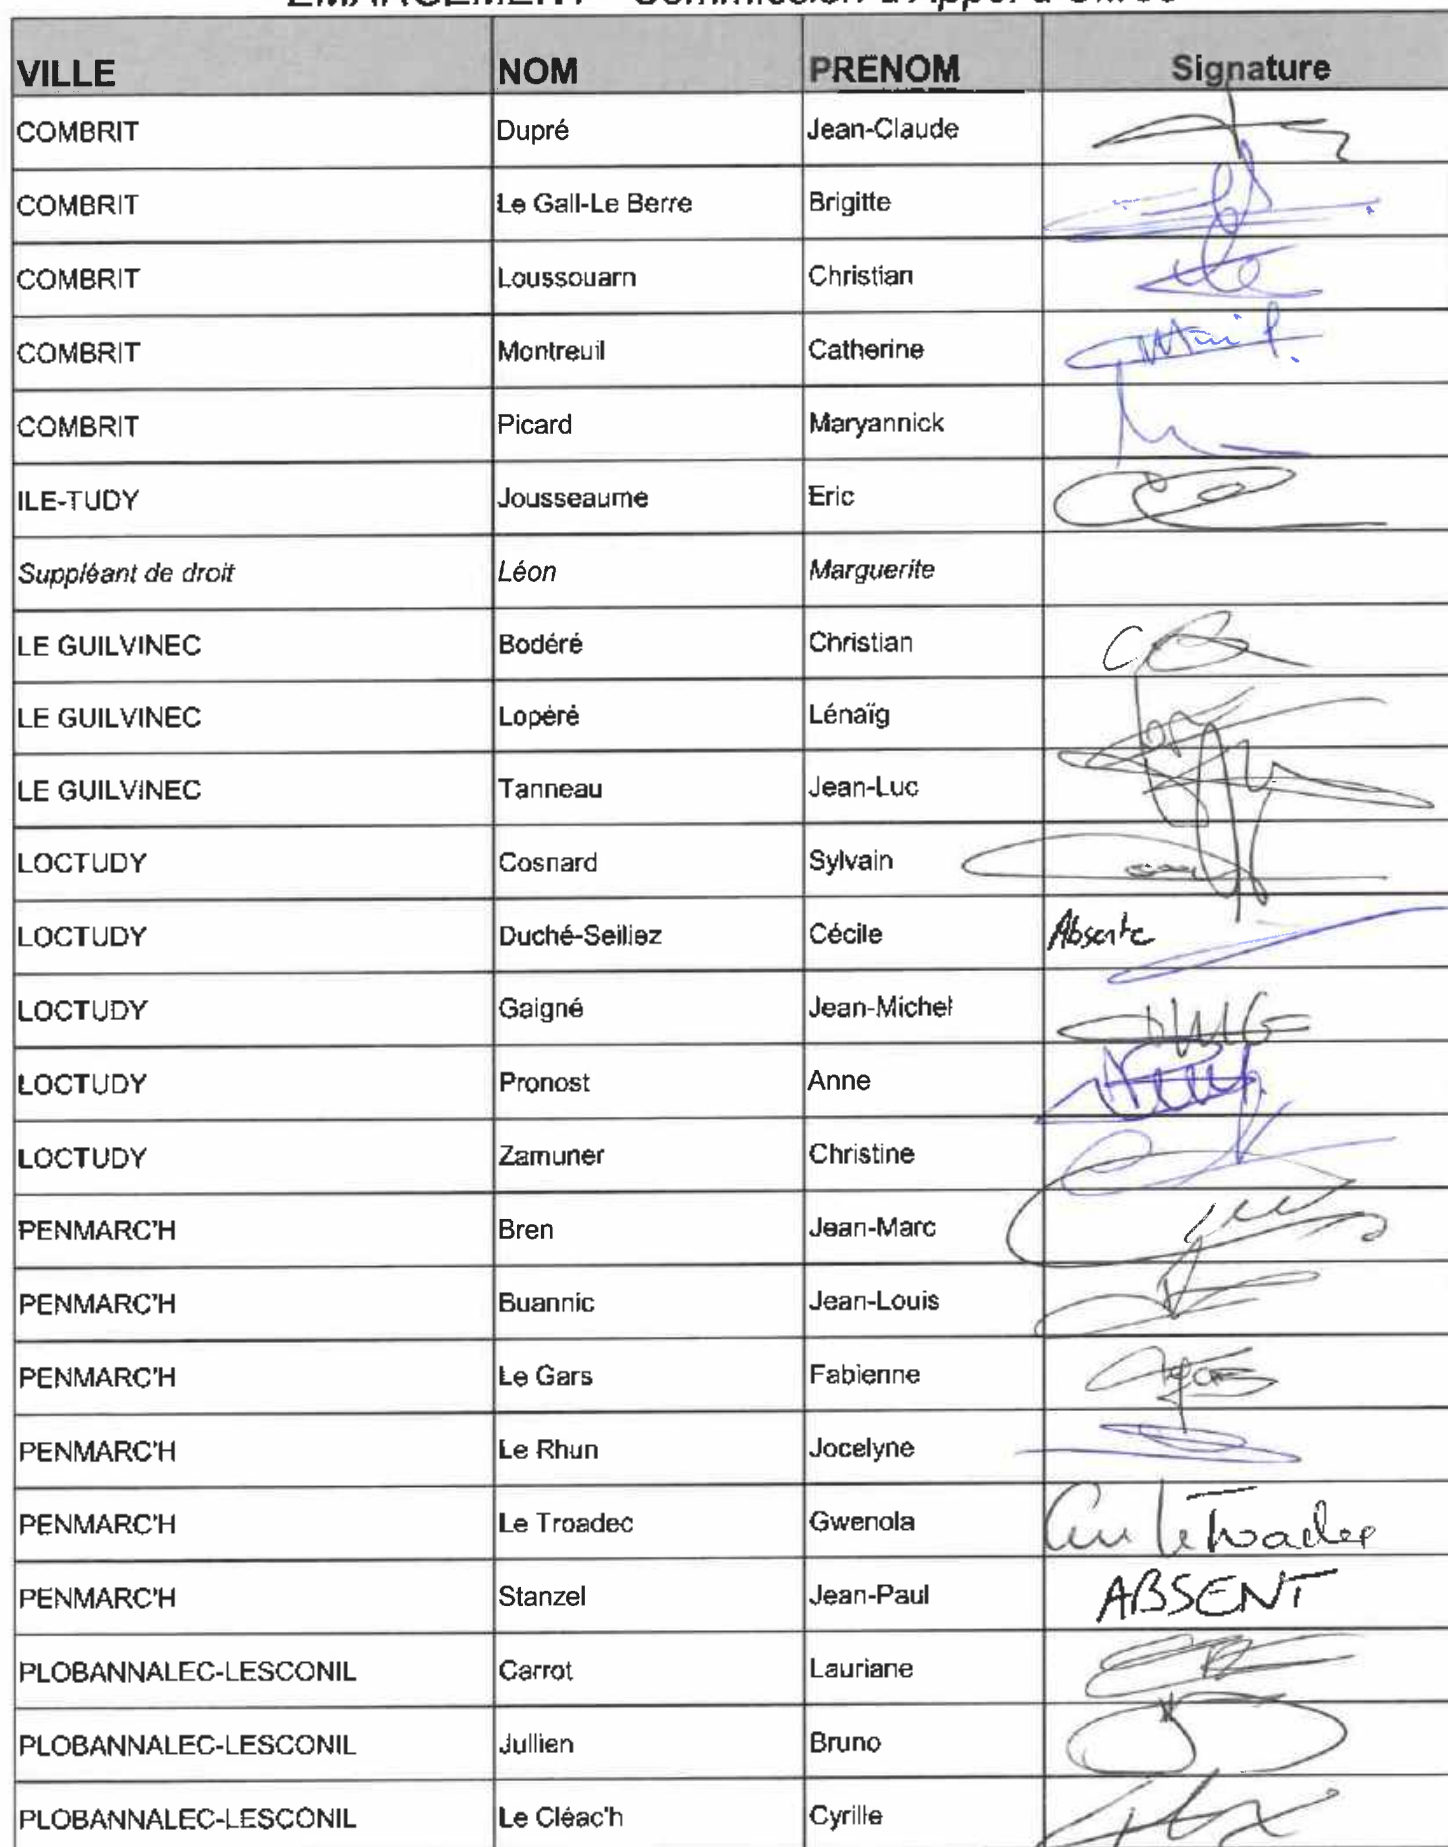 EMARGEMENT - Commission d'Appel d'Offres
VILLE NOM PRENOM Signature
COMBRIT Dupré Jean-Claude
COMBRIT Le Gall-Le Berre Brigitte
COMBRIT Loussouarn Christian
COMBRIT Montreuil Catherine
COMBRIT Picard Maryannick
ILE-TUDY Jousseaume Eric
Suppléant de droit Léon Marguerite
LE GUILVINEC Bodéré Christian
LE GUILVINEC Lopéré Lénaïg
LE GUILVINEC Tanneau Jean-Luc
LOCTUDY Cosnard Sylvain
LOCTUDY Duché-Seiliez Cécile Absente
LOCTUDY Gaigné Jean-Michel
LOCTUDY Pronost Anne
LOCTUDY Zamuner Christine
PENMARC'H Bren Jean-Marc
PENMARC'H Buannic Jean-Louis
PENMARC'H Le Gars Fabienne
PENMARC'H Le Rhun Jocelyne
PENMARC'H Le Troadec Gwenola Le Troadec
PENMARC'H Stanzel Jean-Paul ABSENT
PLOBANNALEC-LESCONIL Carrot Lauriane
PLOBANNALEC-LESCONIL Jullien Bruno
PLOBANNALEC-LESCONIL Le Cléac'h Cyrille